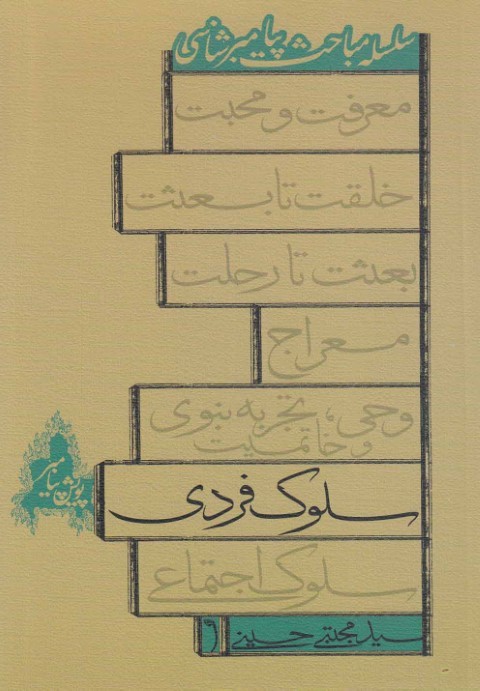 سلسله مباحث پیامبرشناسی
معرفت و محبت
خلقت تا بعثت
بعثت تا رحلت
معراج
وحی، تجربه نبوی
و خاتمیت
سلوک فردی
سلوک اجتماعی
سید مجتبی حسینی
پویش پیامبر